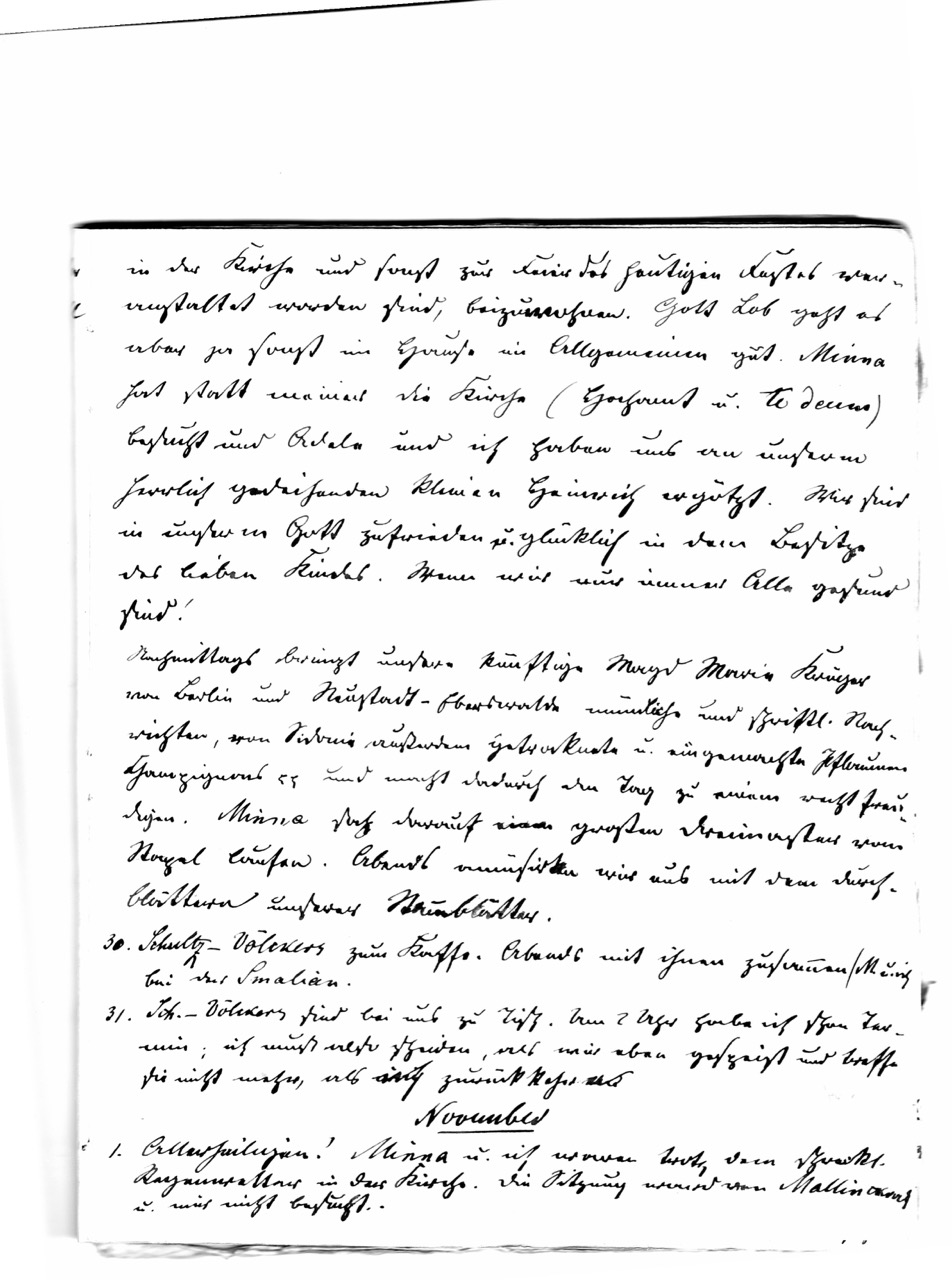 in der Kirche und sonst zur Feier des heutigen Festes ver-
anstaltet worden sind, beizuwohnen. Gott Lob geht es
aber ja sonst im Hause im Allgemeinen gut. Minna
hat statt meiner die Kirche (Hochamt u. te deum)
besucht und Adele und ich haben uns an unserm
herrlich gedeihenden kleinen Heinrich ergötzt. Wir sind
in unserm Gott zufrieden u. glücklich in dem Besitze
des lieben Kindes. Wenn wir nur immer Alle gesund
sind!
Nachmittags bringt unsere künftige Magd Marie Krüger
von Berlin und Neustadt-Eberswalde mündliche und schriftl. Nach-
richten, von Sidonie außerdem getrocknete u. eingemachte Pflaumen
Champignons und macht dadurch den Tag zu einem recht freu-
digen. Minna sah darauf einen großen Dreimaster vom
Stapel laufen. Abends amüsirten wir uns mit dem Durch-
blättern unserer Stammblätter.
30. Schultz-Völckers zum Kaffe. Abends mit ihnen zusammen (M u. ich
bei der Smalian.
31. Sch.-Völckers sind bei uns zu Tisch. Um 2 Uhr habe ich schon Ter-
min; ich muß also scheiden, als wir eben gespeist und treffe
sie nicht mehr, als ich zurückkehre
November
1. Allerheiligen! Minna u. ich waren trotz dem schreckl.
Regenwetter in der Kirche. Die Sitzung ward von Mallinckrodt
u. mir nicht besucht.